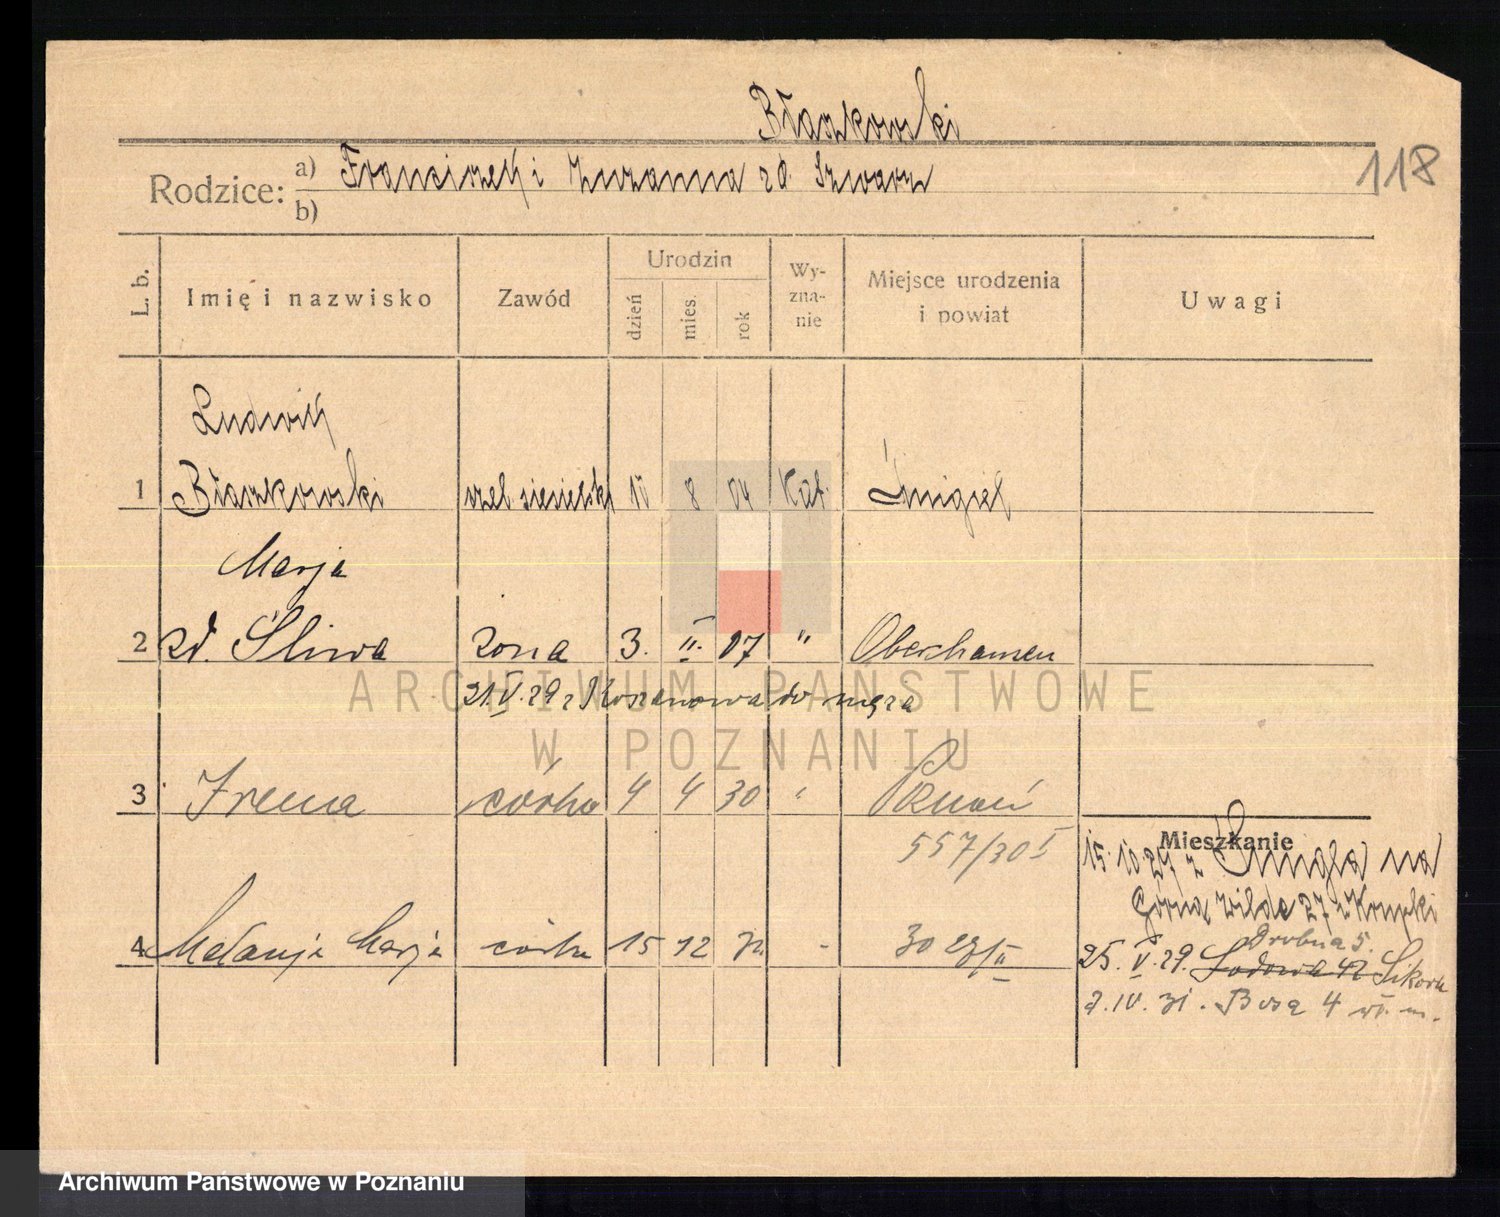 Błaszkowski
118
Rodzice: a) Franciszek i Zuzanna zd. Szwarz
b)
L. b. Imię i nazwisko Zawód Urodzin dzień mies. rok Wy-zna-nie Miejsce urodzenia i powiat Uwagi
Ludwik
1 Błaszkowski czel. siesielski 10 8 04 Kat. Śmigiel
Marja
2 zd. Śliwa żona 3. II. 07 " Oberhamen
21.V.29 z Kosanowa do męża
3 Irena córka 4 4 30 " Poznań
557/30 I
Mieszkanie
15.10.27 z Śmigla na
Górną Wildę 27 u Krupki
4 Melanja Marja córka 15 12 31 -
Drobna 5.
25.V.29. Sikora
2.IV.31. Bosa 4 m.
ARCHIWUM PAŃSTWOWE
W POZNANIU
Archiwum Państwowe w Poznaniu